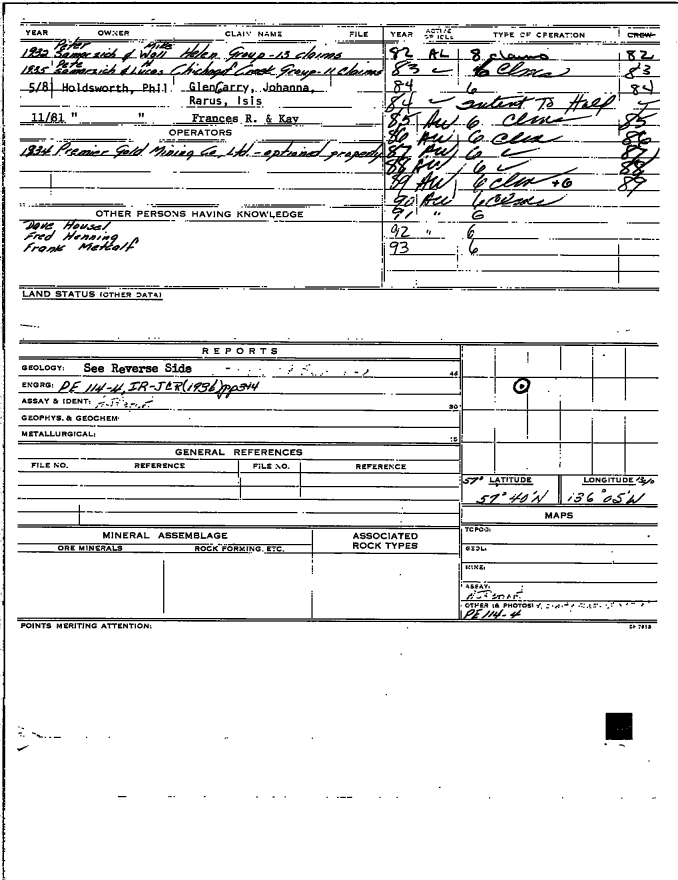 YEAR OWNER CLAIM NAME FILE
Peter Mike
1932 Samarsich & Wall Helen Group-13 claims
Pete
1935 Samarsich & Lucas Chichagof Creek Group-11 claims
5/8 Holdsworth, Phil GlenCarry, Johanna,
Rarus, Isis
11/81 " " Frances R. & Kay
OPERATORS
1934 Premier Gold Mining Co. Ltd. - optioned property
OTHER PERSONS HAVING KNOWLEDGE
Dave Housel
Fred Henning
Frank Metcalf
YEAR ACTIVE OR IDLE TYPE OF OPERATION CROW
82 AL 8 claims 82
83 6 Clms 83
84 6 84
84 intent To Hold
85 AW 6 Clms 85
86 AW 6 Clms 86
87 AW 6
88 AW 6 88
89 AW 6 clms +6 89
90 AW 6 clms
91 " 6
92 " 6
93 6
LAND STATUS (OTHER DATA)
REPORTS
GEOLOGY: See Reverse Side
ENGRG: PE 114-4, IR-JCR(1936)pp3+4
ASSAY & IDENT:
GEOPHYS. & GEOCHEM.
METALLURGICAL:
45
30
15
GENERAL REFERENCES
FILE NO. REFERENCE FILE NO. REFERENCE
57° LATITUDE LONGITUDE 136
57° 40'N 136° 05'W
MAPS
TOPOG:
GEOL:
MINE:
ASSAY:
OTHER (& PHOTOS)
PE 114-4
MINERAL ASSEMBLAGE ASSOCIATED ROCK TYPES
ORE MINERALS ROCK FORMING, ETC.
POINTS MERITING ATTENTION: